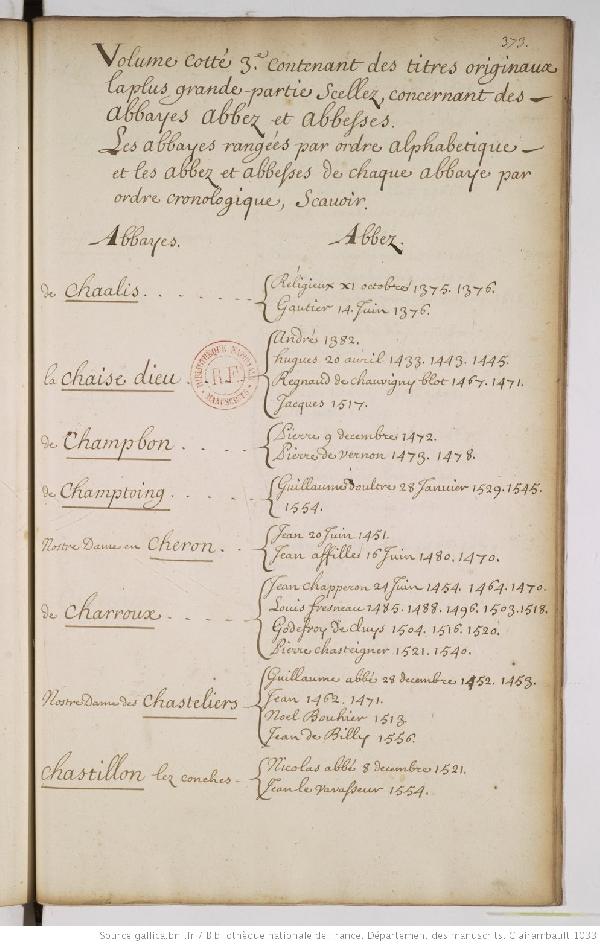 373.
Volume cotté 3.e contenant des titres originaux
la plus grande partie Scellez, concernant des
Abbayes Abbez et Abbesses.
Les Abbayes rangées par ordre Alphabetique
et les Abbez et Abbesses de chaque Abbaye par
ordre cronologique, Scavoir.
Abbayes. Abbez.
de Chaalis. Réligieux XI octobre 1375. 1376.
Gautier 14. Juin 1376.
la chaise dieu André 1382.
hugues 20 avril 1433. 1443. 1445.
Regnaud de chauvigny blot 1467. 1471.
Jacques 1517.
BIBLIOTHEQUE NATIONALE
R.F.
MANUSCRITS
de Champbon. Pierre 9 decembre 1472.
Pierre de vernon 1473. 1478.
de Champtoing. Guillaume doultre 28 Janvier 1529. 1545.
1554.
Nostre Dame en Cheron. Jean 20 Juin 1451.
Jean affille 16 Juin 1480. 1470.
de Charroux. Jean chapperon 24 Juin 1454. 1464. 1470.
Louis fresneau 1485. 1488. 1496. 1503. 1518.
Godefroy de cluys 1504. 1516. 1520.
Pierre chasteigner 1521. 1540.
Nostre Dame des Chasteliers Guillaume abbé 28 decembre 1452. 1453.
Jean 1462. 1471.
Noel Bouhier 1513.
Jean de Billy 1556.
chastillon lez conches Nicolas abbé 8 decembre 1521.
Jean le vavasseur 1554.
Source gallica.bnf.fr / Bibliothèque nationale de France. Département des manuscrits. Clairambault 1033